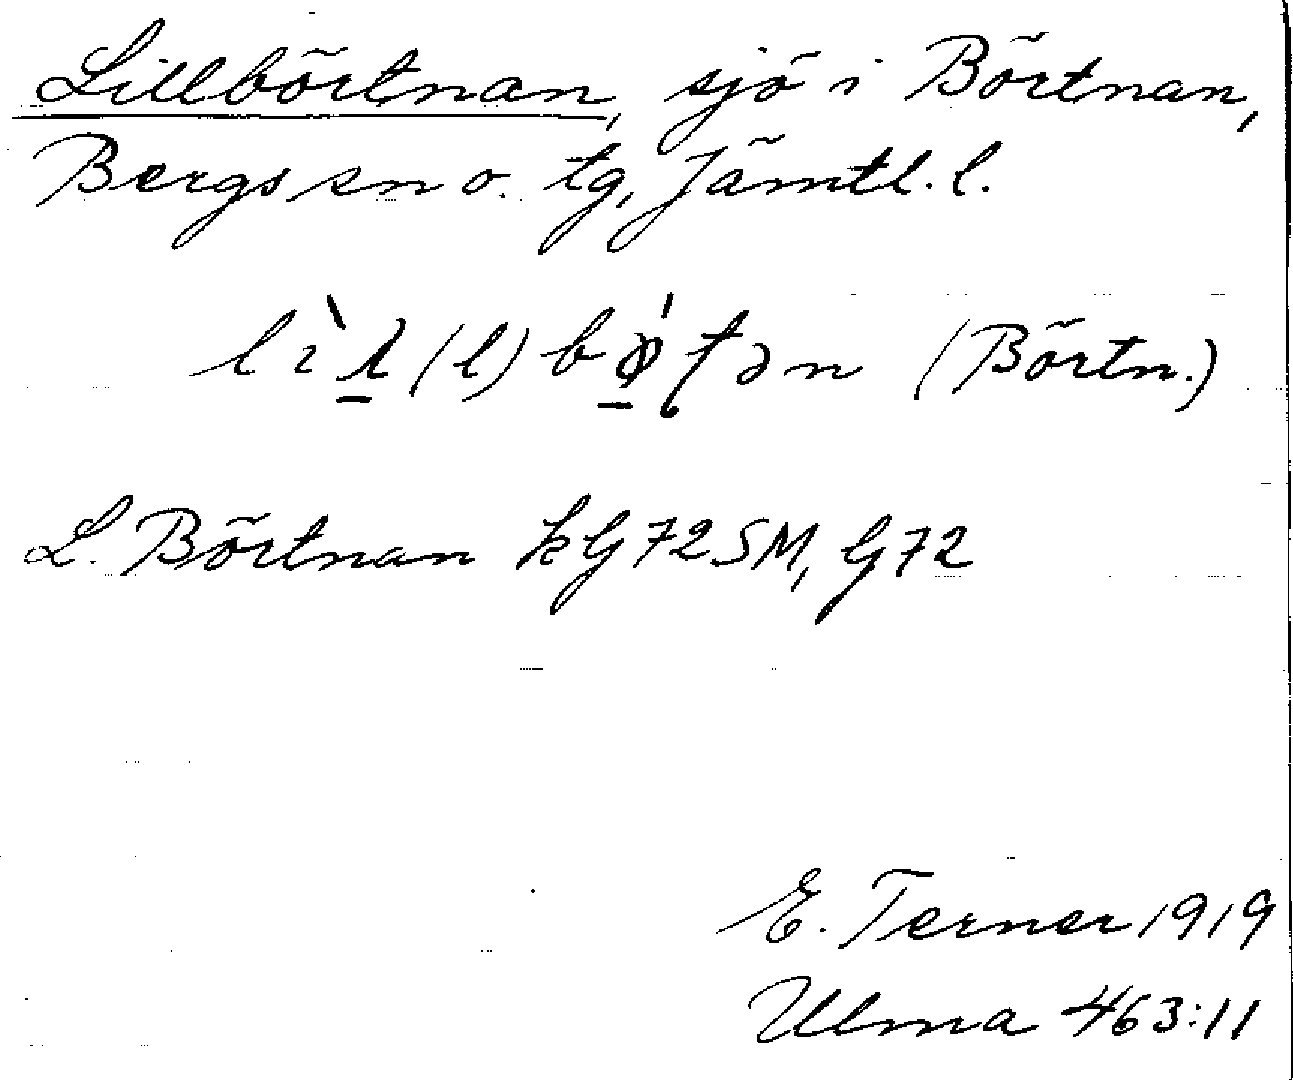 Lillbörtnan, sjö i Börtnan,
Bergs sn o. tg, Jämtl. l.
(Börtn.)
L. Börtnan kG 72 SM, G 72
E. Terner 1919
Ulma 463:11